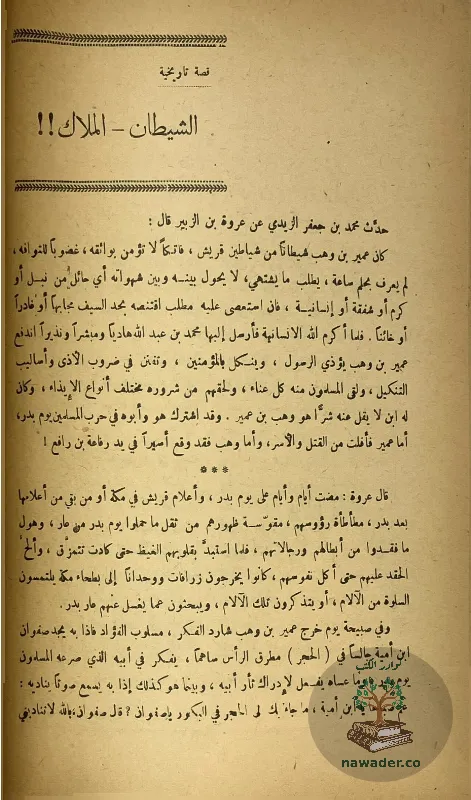 قصة تاريخية
الشيطان - الملاك!!
حدَّث محمد بن جعفر الزبيدي عن عروة بن الزبير قال :
كان عمير بن وهب شيطاناً من شياطين قريش ، فاتكاً لا تؤمن بوائقه ، غضوباً للتوافه ،
لم يعرف بحلم ساعة ، يطلب ما يشتهي، لا يحول بينه وبين شهواته أي حائل من نبل أو
كرم أو شفقة أو إنسانية ، فان استعصى عليه مطلب اقتنصه بحد السيف مجابهاً أو غادراً
أو خائناً . فلما أكرم الله الانسانية فأرسل إليها محمد بن عبد الله هادياً ومبشراً ونذيراً اندفع
عمير بن وهب يؤذي الرسول ، وينكل بالمؤمنين ، وتفنن في ضروب الأذى وأساليب
التنكيل ، ولقي المسلمون منه كل عناء ، ولحقهم من شروره مختلف أنواع الإيذاء ، وكان
له ابن لا يقل عنه شراً هو وهب بن عمير . وقد اشترك هو وأبوه في حرب المسلمين يوم بدر،
أما عمير فأفلت من القتل والأسر، وأما وهب فقد وقع أسيراً في يد رفاعة بن رافع !
***
قال عروة : مضت أيام وأيام على يوم بدر ، وأعلام قريش في مكة أو من بقي من أعلامها
بعد بدر ، مطأطأة رؤوسهم ، مقوّسة ظهورهم من ثقل ما حملوا يوم بدر من عار ، وهول
ما فقدوا من أبطالهم ورجالاتهم ، فلما استبدَّ بقلوبهم الغيظ حتى كادت تتمزق ، وألحَّ
الحقد عليهم حتى أكل نفوسهم ، كانوا يخرجون زرافات ووحداناً إلى بطحاء مكة يلتمسون
السلوة من الآلام ، أو يتذكرون تلك الآلام ، ويبحثون عما يغسل عنهم عار بدر .
وفي صبيحة يوم خرج عمير بن وهب شارد الفكر ، مسلوب الفؤاد فاذا به يجد صفوان
ابن أمية جالساً في ( الحجر ) مطرق الرأس ساهماً ، يفكر في أبيه الذي صرعه المسلمون
يوم بدر وما عساه يفعل لإدراك ثأر أبيه ، وبينما هو كذلك إذا به يسمع صوتاً يناديه :
بن أمية ، ما جاء بك لى الحجر في البكور ياصفوان ؟ قال صفوان: بالله لا تناديني
نوادر الكتب
nawader.co